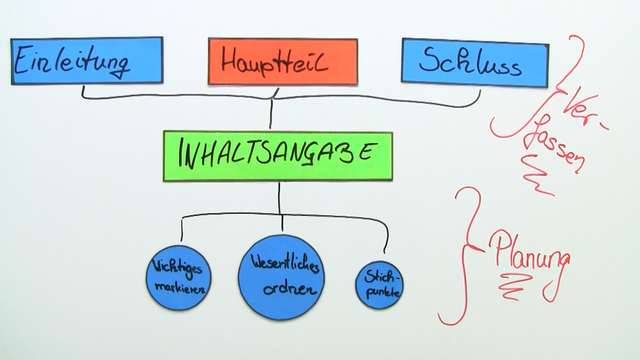 Einleitung
Hauptteil
Schluss
Ver-
fassen
INHALTSANGABE
Wichtiges
markieren
Wesentliches
ordnen
Stich-
punkte
Planung